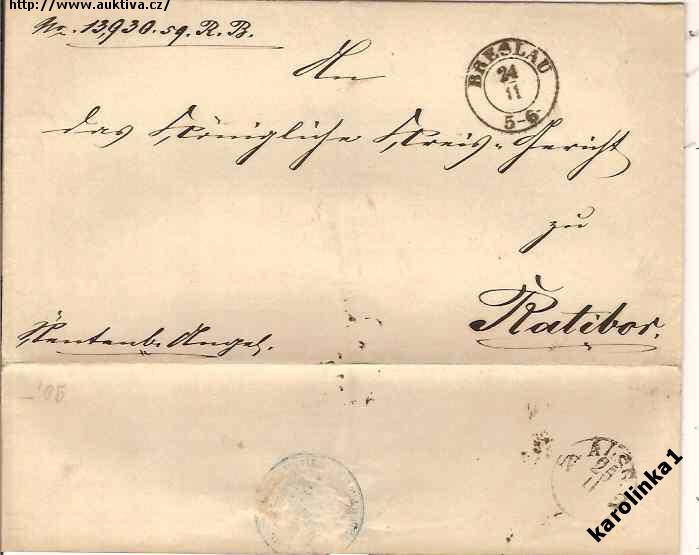 http://www.auktiva.cz/
No. 13,930.59.R.B.
An
BRESLAU
24
11
5-6
das Königliche Kreis-Gericht
zu
Ratibor.
Rentenb. Angel.
AUSG
25
11
karolinka1